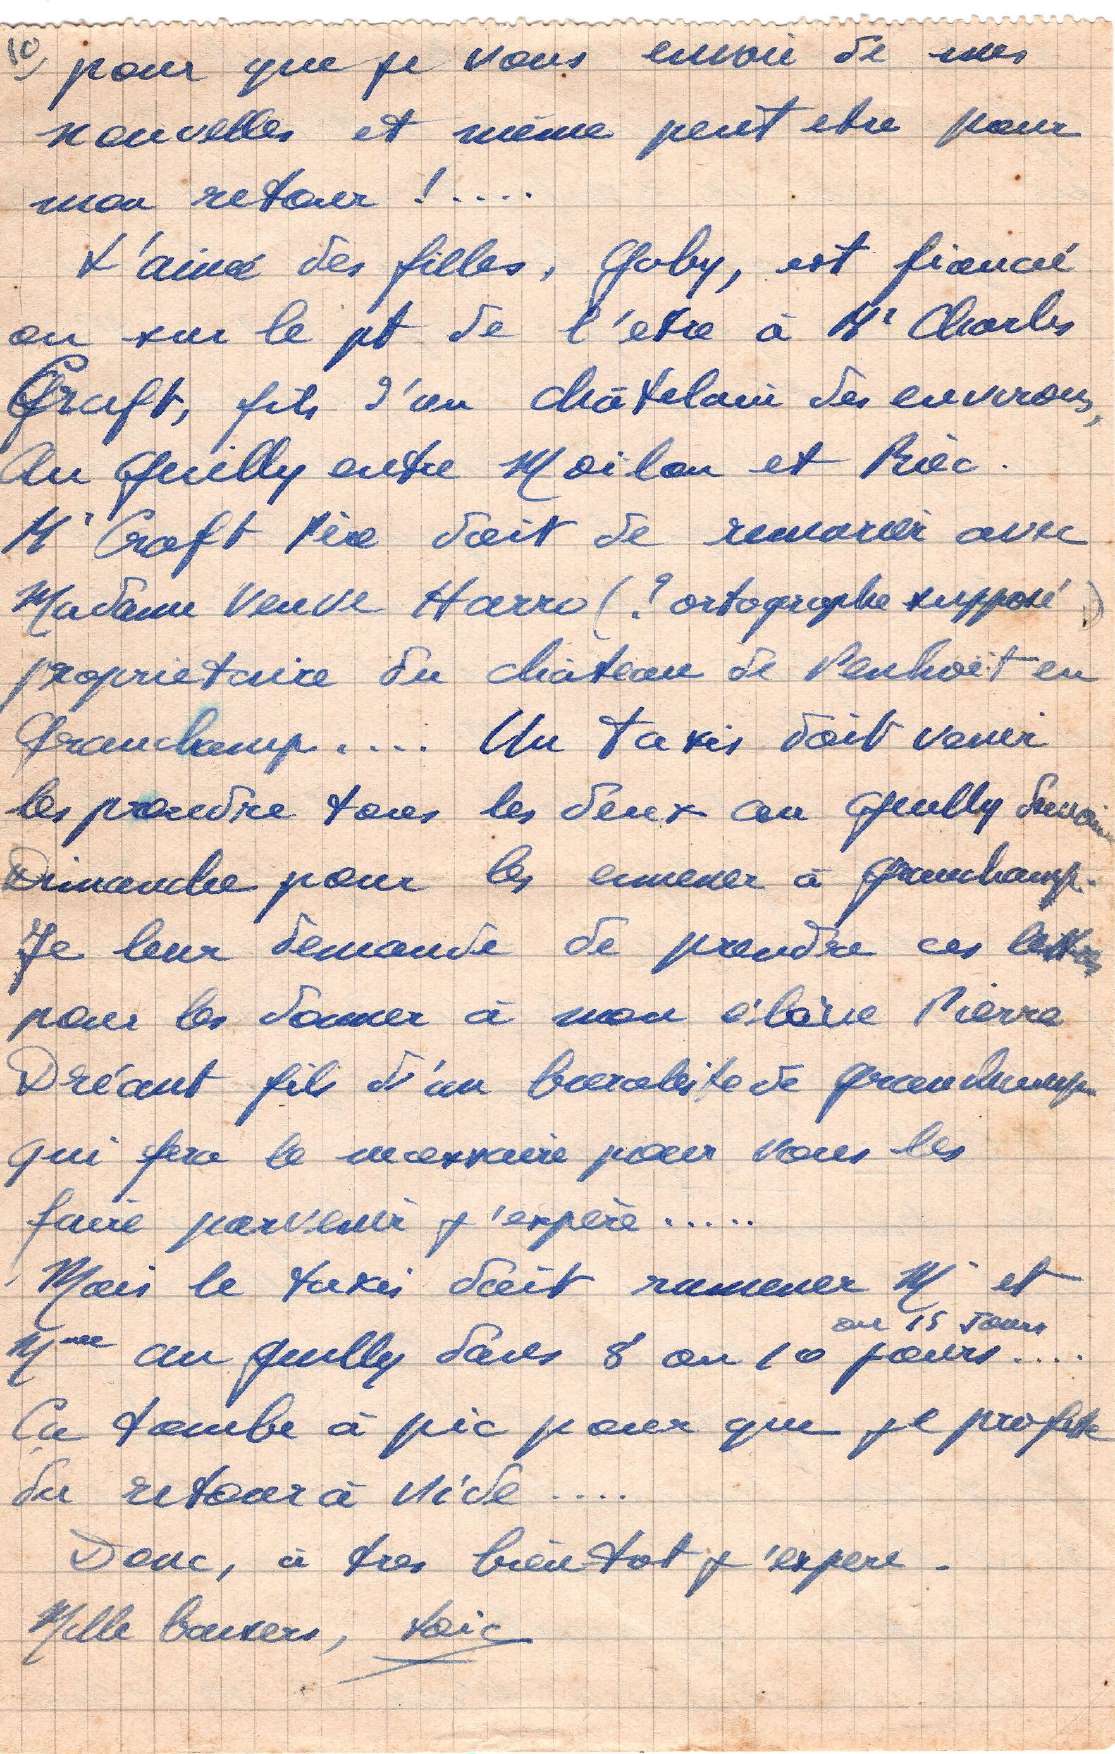 10)
pour que je vous envoie de mes
nouvelles et même peut etre pour
mon retour !....
L'ainée des filles, Gaby, est fiancé
ou sur le pt de l'etre à Mr Charles
Craft, fils d'un châtelain des environs,
Au Guilly entre Moilan et Riec.
Mr Craft Père doit se remarier avec
Madame Veuve Harro (? ortographe supposé)
proprietaire du château de Penhoët en
Granchamp.... Un taxis doit venir
les prendre tous les deux au Guilly demain
Dimanche pour les emener à Granchamp.
Je leur demande de prendre ces lettres
pour les donner à mon élève Pierre
Dréant fils d'un buraliste de Granchamp
qui fera le necessaire pour vous les
faire parvenir j'espère.....
Mais le taxis doit ramener Mr et
ou 15 Jours
Mme au Guilly dans 8 ou 10 jours....
Ca tombe à pic pour que je profite
du retour à vide ....
Donc, à tres bientot j'espere.
Mille baisers, Loic